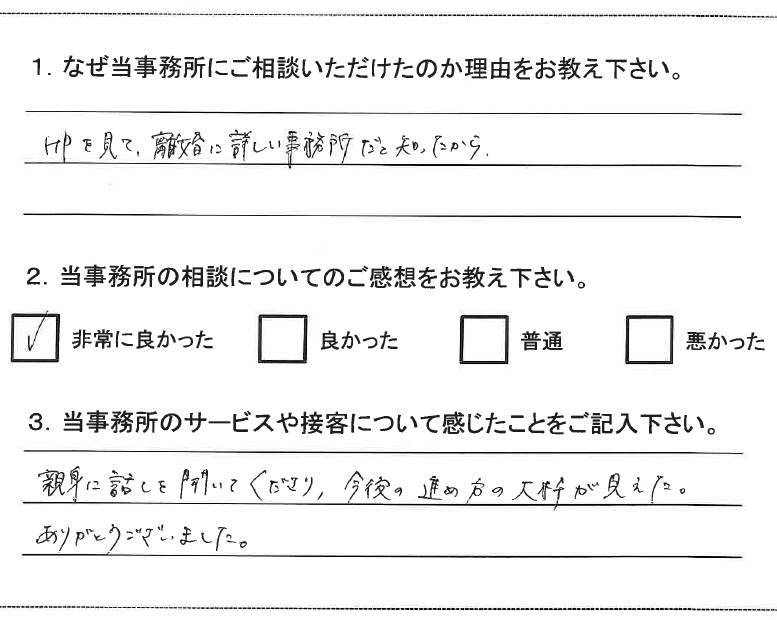 1. なぜ当事務所にご相談いただけたのか理由をお教え下さい。
HPを見て、離婚に詳しい事務所だと知ったから.
2. 当事務所の相談についてのご感想をお教え下さい。
非常に良かった 良かった 普通 悪かった
3. 当事務所のサービスや接客について感じたことをご記入下さい。
親身に話しを聞いてくださり, 今後の進め方の大枠が見えた。
ありがとうございました。